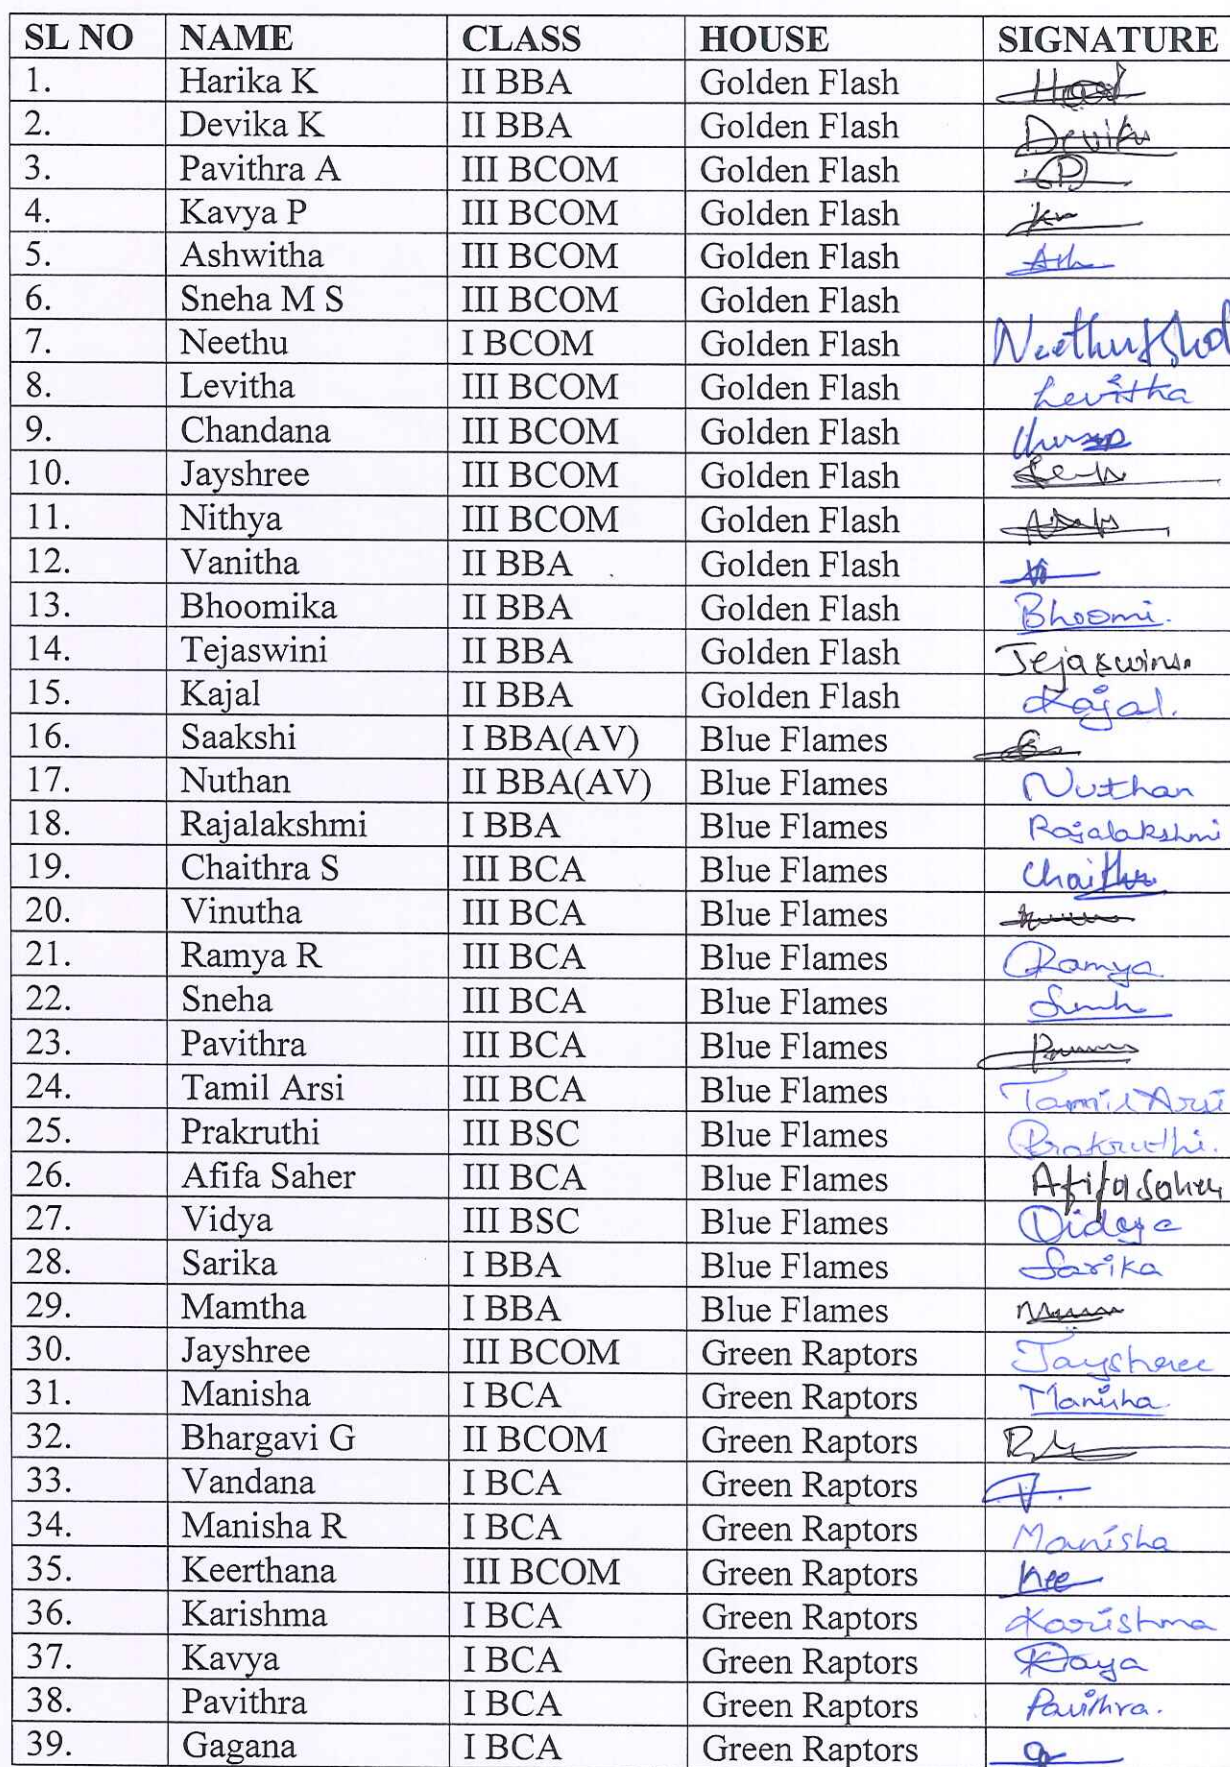 SL NO NAME CLASS HOUSE SIGNATURE
1. Harika K II BBA Golden Flash
2. Devika K II BBA Golden Flash Devika
3. Pavithra A III BCOM Golden Flash
4. Kavya P III BCOM Golden Flash
5. Ashwitha III BCOM Golden Flash
6. Sneha M S III BCOM Golden Flash
7. Neethu I BCOM Golden Flash
8. Levitha III BCOM Golden Flash Levitha
9. Chandana III BCOM Golden Flash
10. Jayshree III BCOM Golden Flash
11. Nithya III BCOM Golden Flash
12. Vanitha II BBA Golden Flash
13. Bhoomika II BBA Golden Flash Bhoomi.
14. Tejaswini II BBA Golden Flash Tejaswini
15. Kajal II BBA Golden Flash Kajal.
16. Saakshi I BBA(AV) Blue Flames
17. Nuthan II BBA(AV) Blue Flames Nuthan
18. Rajalakshmi I BBA Blue Flames Rajalakshmi
19. Chaithra S III BCA Blue Flames
20. Vinutha III BCA Blue Flames
21. Ramya R III BCA Blue Flames Ramya
22. Sneha III BCA Blue Flames
23. Pavithra III BCA Blue Flames
24. Tamil Arsi III BCA Blue Flames Tamil Arsi
25. Prakruthi III BSC Blue Flames Prakruthi.
26. Afifa Saher III BCA Blue Flames Afifa Saher
27. Vidya III BSC Blue Flames
28. Sarika I BBA Blue Flames Sarika
29. Mamtha I BBA Blue Flames
30. Jayshree III BCOM Green Raptors Jayshree
31. Manisha I BCA Green Raptors Manisha
32. Bhargavi G II BCOM Green Raptors
33. Vandana I BCA Green Raptors V.
34. Manisha R I BCA Green Raptors Manisha
35. Keerthana III BCOM Green Raptors Kee
36. Karishma I BCA Green Raptors Karishma
37. Kavya I BCA Green Raptors
38. Pavithra I BCA Green Raptors Pavithra.
39. Gagana I BCA Green Raptors